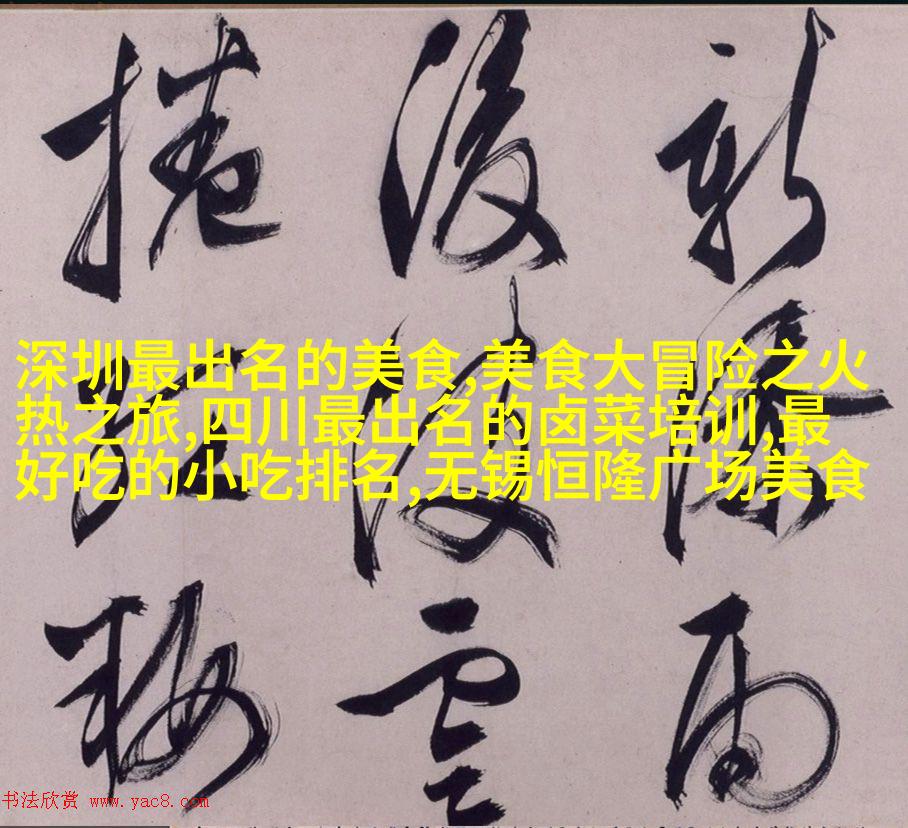 新 雨
後 雲
捲 梅
深圳最出名的美食,美食大冒险之火
热之旅,四川最出名的卤菜培训,最
好吃的小吃排名,无锡恒隆广场美食
书法欣赏 www.yac8.com